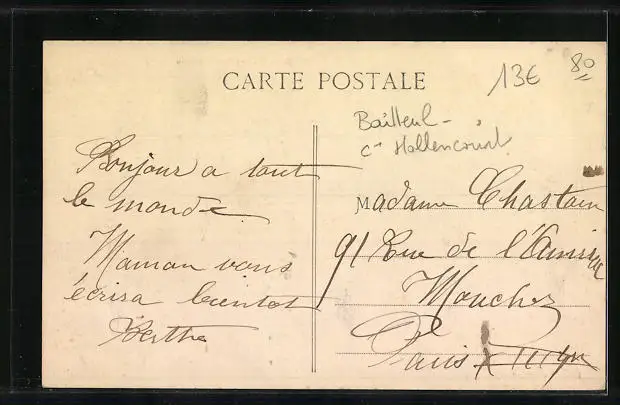 CARTE POSTALE
13€
80
Bailleul -
cⁿ Hallencourt
Bonjour a tout
le monde
Maman vous
écrira bientot
Berthe
Madame Chastain
91 Rue de l'Amiral
Mouchez
Paris XIII